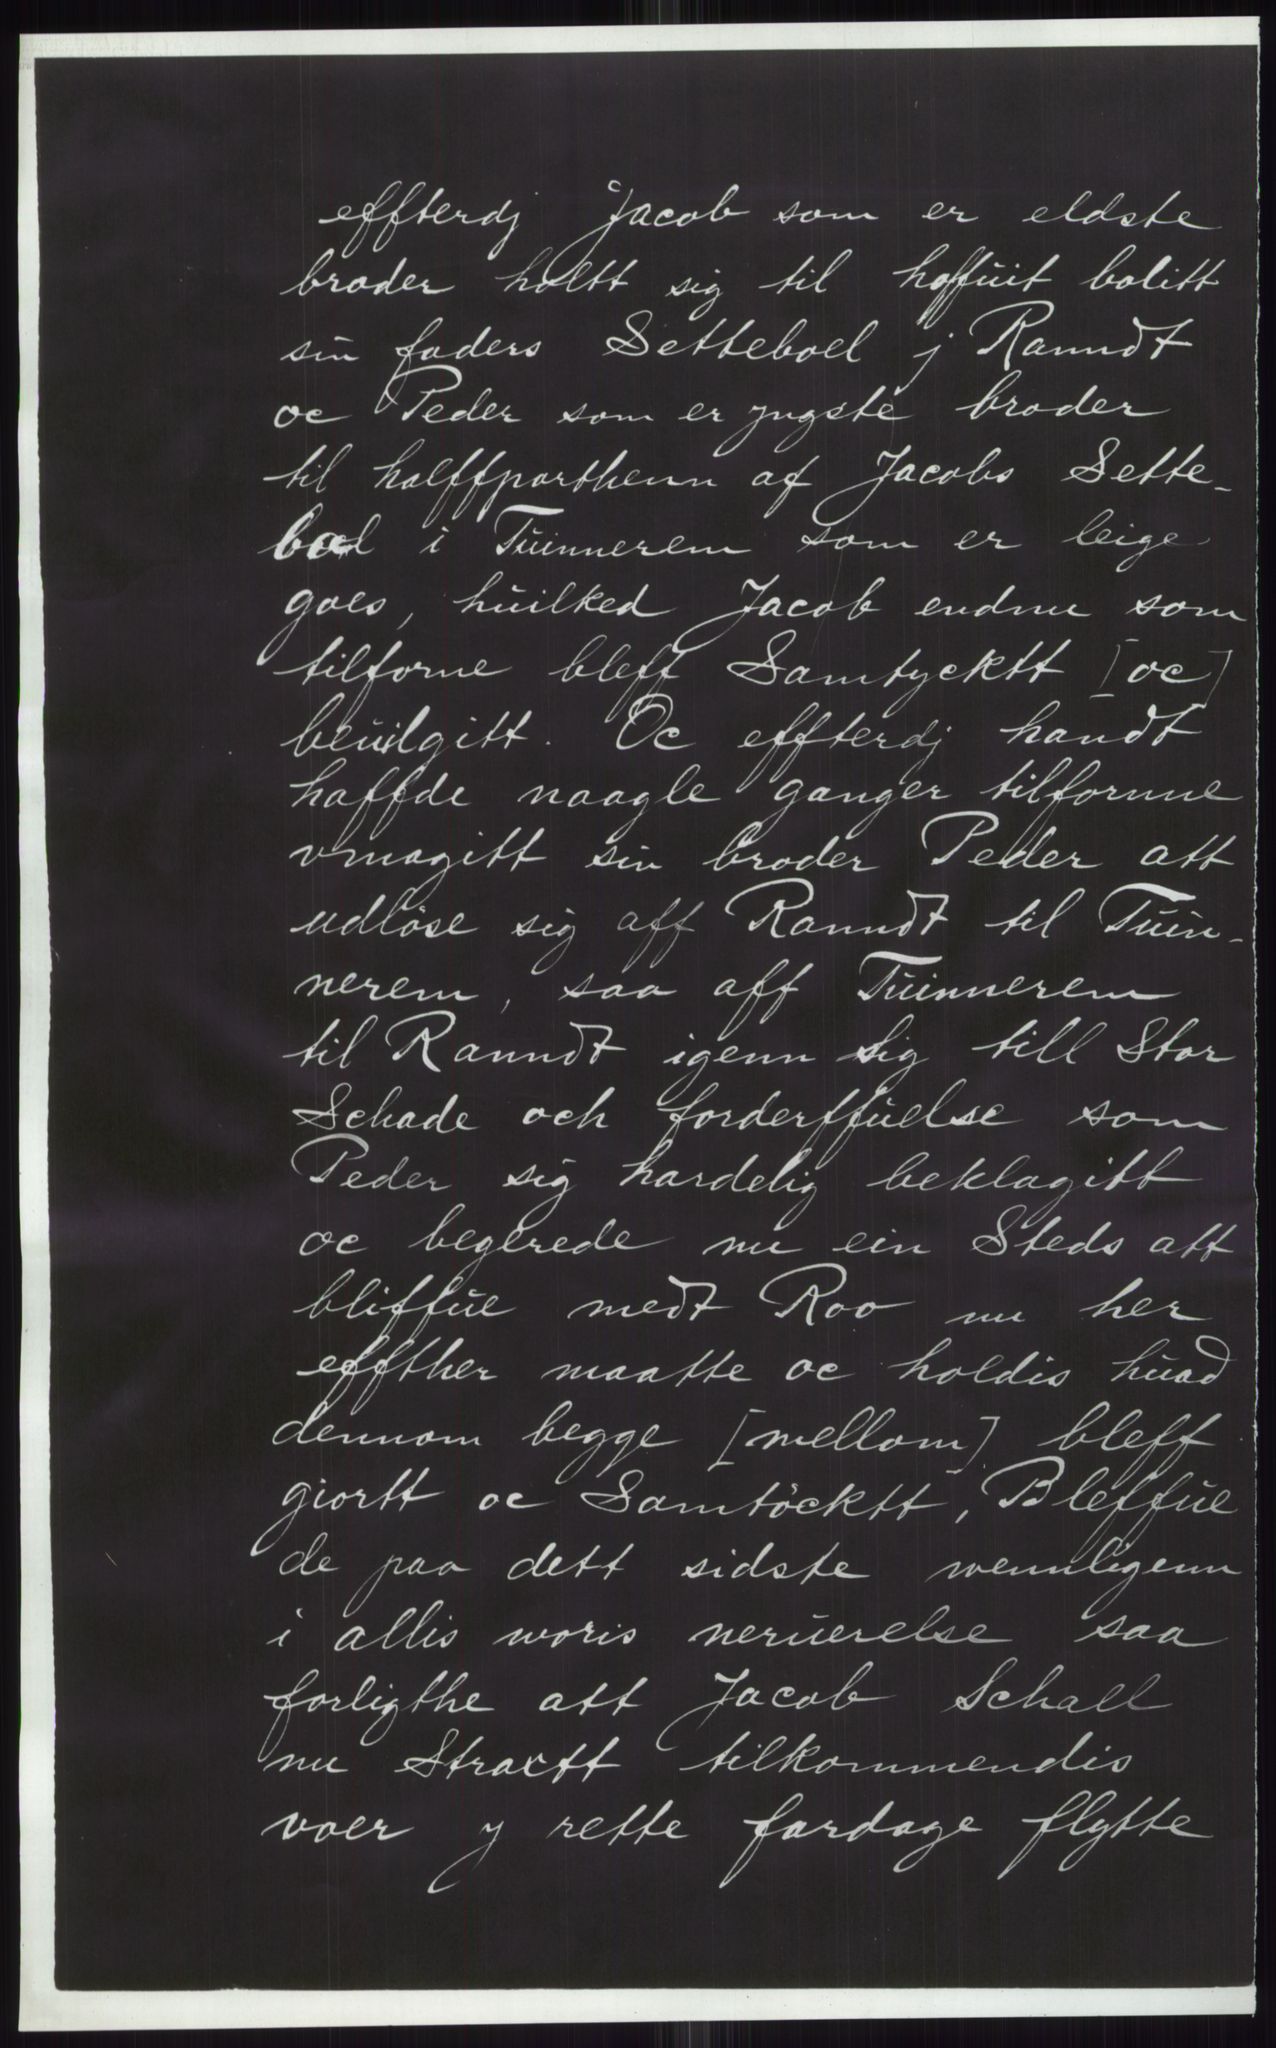 effterdj Jacob som er eldste
broder holtt sig til hoffuit bolitt
sin faders Setteboel j Ranndt
oc Peder som er yngste broder
til halffparthenn af Jacobs Sette-
boel i Tüinnerem som er leige
goes, hüilked Jacob endnu som
tilforne bleff Samtycktt [oc]
beüilgitt. Oc effterdj handt
haffde naagle ganger tilfornne
vmagitt sin broder Peder att
udløse sig aff Ranndt til Tüin-
nerem, saa aff Tüinnerem
til Ranndt igenn sig till Stor
Schade och forderffüelse som
Peder sig hardelig beklagitt
oc begerede nu ein Steds att
bliffüe medt Roo nu her
effther maatte oc holdis hüad
dennom begge [mellom] bleff
giortt oc Samtöcktt, Bleffüe
de paa dett sidste wennligenn
i allis woris nerüerelse saa
forligthe att Jacob Schall
nu Straxtt tilkommendis
voer y rette fardage flytte